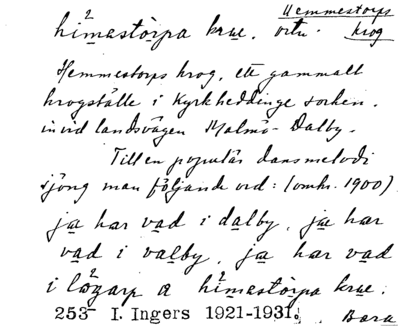 Hemmestorps
krog
hi²mastòrpa krue. ortn.
Hemmestorps krog, ett gammalt
krogställe i Kyrkheddinge socken.
invid landsvägen Malmö-Dalby.
Till en populär dansmelodi
sjöng man följande ord: (omkr. 1900)
ja har vad i dalby, ja har
vad i valby, ja har vad
i lö²garp a hi²mastòrpa krue.
253 I. Ingers 1921-1931. Bara